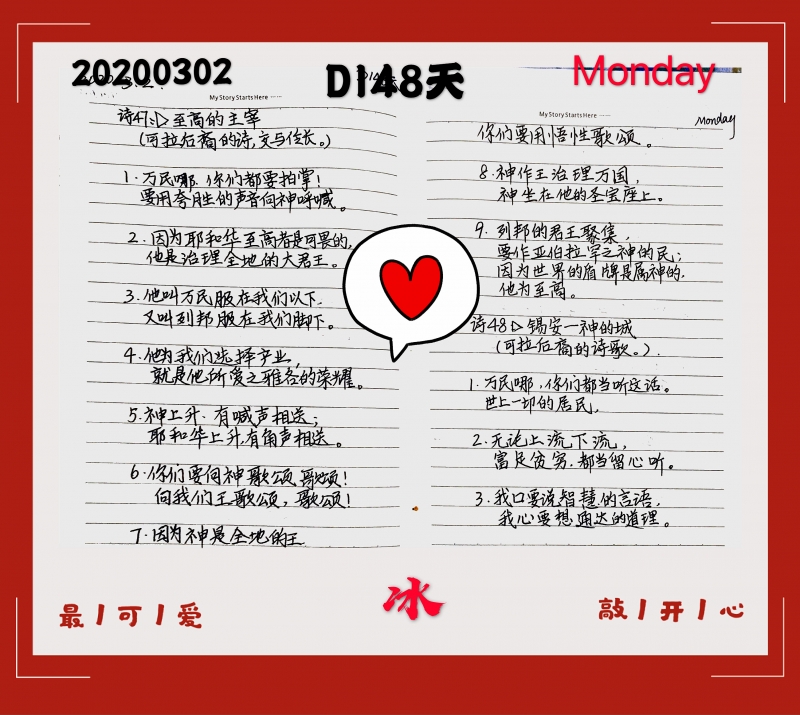 20200302
D148天
Monday
My Story Starts Here ······
诗47:▷至高的主宰
(可拉后裔的诗,交与伶长。)
1.万民哪,你们都要拍掌!
要用夸胜的声音向神呼喊。
2.因为耶和华至高者是可畏的,
他是治理全地的大君王。
3.他叫万民服在我们以下,
又叫列邦服在我们脚下。
4.他为我们选择产业,
就是他所爱之雅各的荣耀。
5.神上升,有喊声相送;
耶和华上升,有角声相送。
6.你们要向神歌颂,歌颂!
向我们王歌颂,歌颂!
7.因为神是全地的王
My Story Starts Here ······
Monday
你们要用悟性歌颂。
8.神作王治理万国,
神坐在他的圣宝座上。
9.列邦的君王聚集,
要作亚伯拉罕之神的民;
因为世界的盾牌是属神的,
他为至高。
诗48▷锡安—神的城
(可拉后裔的诗歌。)
1.万民哪,你们都当听这话。
世上一切的居民,
2.无论上流下流,
富足贫穷,都当留心听。
3.我口要说智慧的言语,
我心要想通达的道理。
最丨可丨爱
冰
敲丨开丨心